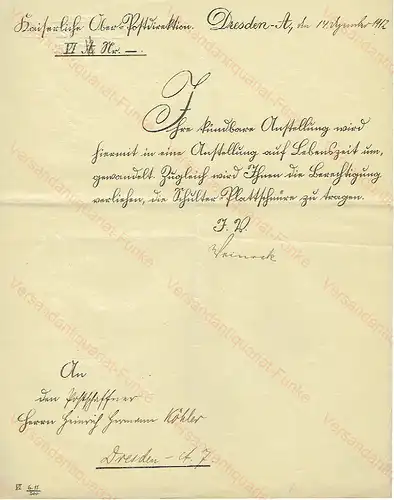 Kaiserliche Ober-Postdirektion. Dresden-A, den 14 Dezember 1912
VI Nr. —.
Ihre kündbare Anstellung wird
hiermit in eine Anstellung auf Lebenszeit um-
gewandelt. Zugleich wird Ihnen die Berechtigung
verliehen, die Schulter-Plattschnüre zu tragen.
I. V.
An
den Postschaffner
Herrn Heinrich Hermann Köhler
Dresden - A. 7
Versandantiquariat-Funke